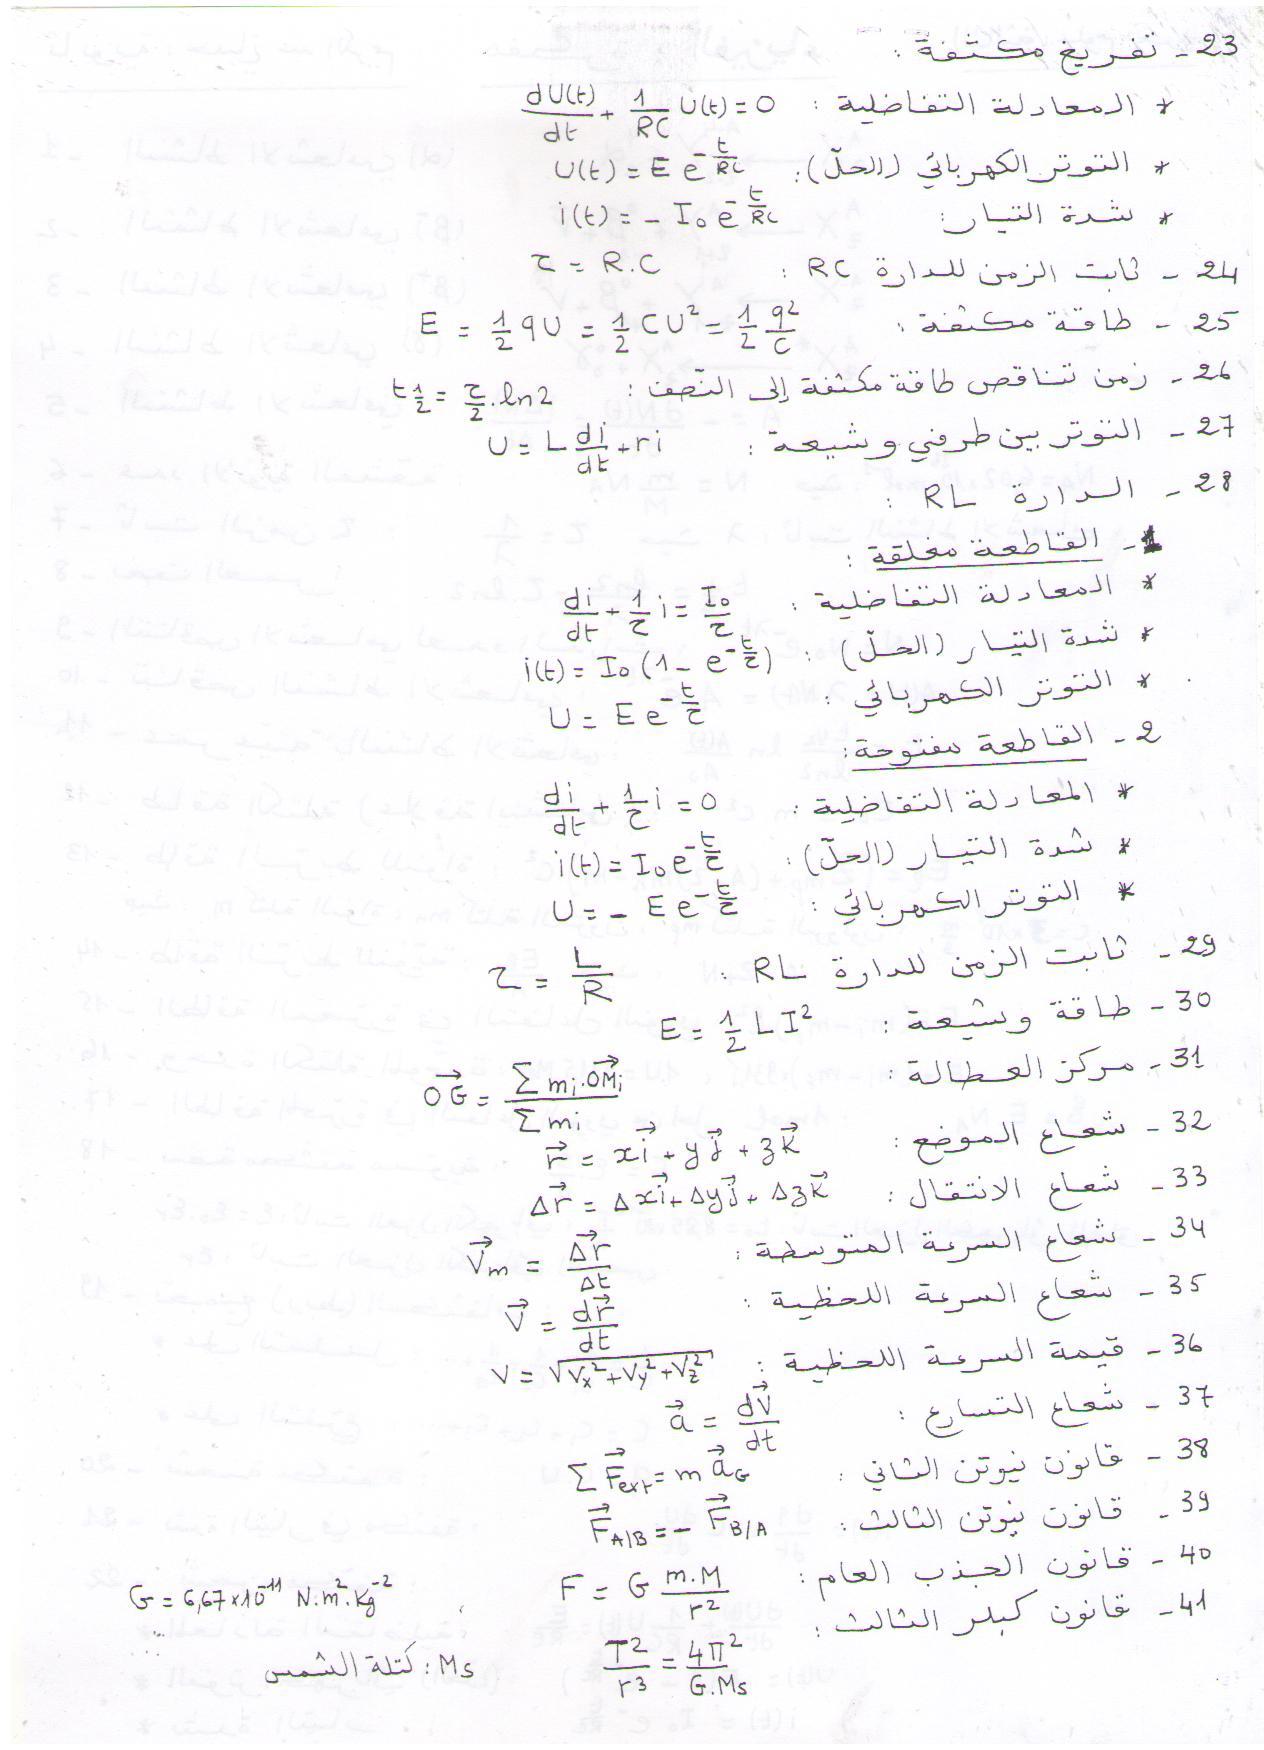 23 - تفريغ مكثفة :
* المعادلة التفاضلية : dU(t)/dt + 1/RC U(t) = 0
* التوتر الكهربائي (الحلّ) : U(t) = E e^(-t/RC)
* شدة التيار : i(t) = - I₀ e^(-t/RC)
24 - ثابت الزمن للدارة RC : τ = R.C
25 - طاقة مكثفة : E = 1/2 qU = 1/2 CU² = 1/2 q²/C
26 - زمن تناقص طاقة مكثفة إلى النّصف : t1/2 = τ/2 . ln2
27 - التوتر بين طرفي وشيعة : U = L di/dt + ri
28 - الدارة RL :
1 - القاطعة مغلقة :
* المعادلة التفاضلية : di/dt + 1/τ i = I₀/τ
* شدة التيار (الحلّ) : i(t) = I₀ (1 - e^(-t/τ))
* التوتر الكهربائي : U = E e^(-t/τ)
2 - القاطعة مفتوحة :
* المعادلة التفاضلية : di/dt + 1/τ i = 0
* شدة التيار (الحلّ) : i(t) = I₀ e^(-t/τ)
* التوتر الكهربائي : U = - E e^(-t/τ)
29 - ثابت الزمن للدارة RL : τ = L/R
30 - طاقة وشيعة : E = 1/2 L I²
31 - مركز العطالة : OG⃗ = Σ mᵢ.OMᵢ⃗ / Σ mᵢ
32 - شعاع الموضع : r⃗ = x i⃗ + y j⃗ + z k⃗
33 - شعاع الانتقال : Δr⃗ = Δx i⃗ + Δy j⃗ + Δz k⃗
34 - شعاع السرعة المتوسطة : V⃗m = Δr⃗/Δt
35 - شعاع السرعة اللحظية : V⃗ = dr⃗/dt
36 - قيمة السرعة اللحظية : V = √(Vx² + Vy² + Vz²)
37 - شعاع التسارع : a⃗ = dV⃗/dt
38 - قانون نيوتن الثاني : Σ F⃗ext = m a⃗G
39 - قانون نيوتن الثالث : F⃗A/B = - F⃗B/A
40 - قانون الجذب العام : F = G m.M/r²
G = 6,67×10⁻¹¹ N.m².Kg⁻²
41 - قانون كبلر الثالث : T²/r³ = 4π²/G.Ms
Ms : كتلة الشمس